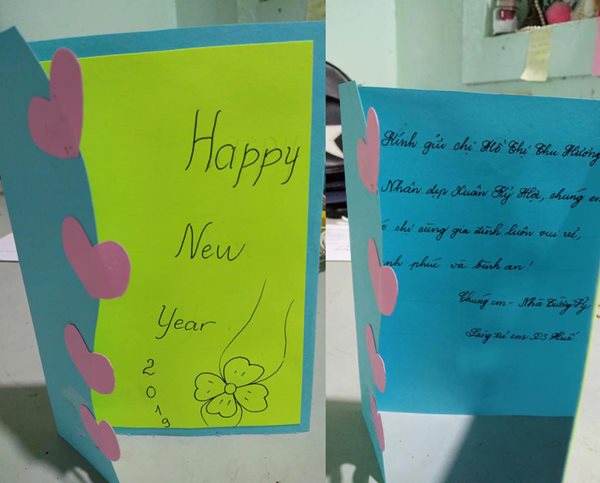 Happy
New
Year
2
0
1
9
Kính gửi chị Hồ Thị Thu Hương
Nhân dịp Xuân Kỷ Hợi, chúng em
chị cùng gia đình luôn vui vẻ,
phúc và bình an!
Chúng em - Nhà
em